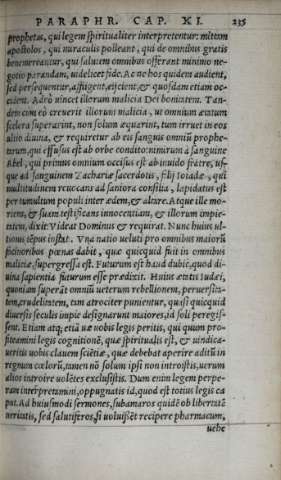 PARAPHR. CAP. XI. 235
prophetas, qui legem spiritualiter interpretentur: mittam
apostolos, qui miraculis polleant, qui de omnibus gratis
benemereantur, qui salutem omnibus offerant minimo ne-
gotio parandam, uidelicet fide. Ac ne hos quidem audient,
sed persequentur, affligent, eijcient, & quosdam etiam oc-
cident. Adeò uincet illorum malitia Dei bonitatem. Tan-
dem cum eò creuerit illorum malitia, ut omnium ætatum
scelera superarint, non solum æquarint, tum irruet in eos
ultio diuina, & requiretur ab eis sanguis omniũ prophe-
tarum, qui effusus est ab orbe condito: nimirum à sanguine
Abel, qui primus omnium occisus est ab inuido fratre, us-
que ad sanguinem Zachariæ sacerdotis, filij Ioiadæ, qui
multitudinem reuocans ad saniora consilia, lapidatus est
per tumultum populi inter ædem, & altare. Atque ille mo-
riens, & suam testificans innocentiam, & illorum impie-
tatem, dixit: Videat Dominus & requirat. Nunc huius ul-
tionis tẽpus instat. Vna natio ueluti pro omnibus maiorũ
facinoribus pœnas dabit, quæ quicquid fuit in omnibus
malitiæ, supergressa est. Futurum est haud dubiè, quod di-
uina sapientia futurum esse prædixit. Huius ætatis Iudæi,
quoniam superãt omniũ ueterum rebellionem, peruersita-
tem, crudelitatem, tam atrociter punientur, quasi quicquid
diuersis seculis impiè designarunt maiores, id soli peregis-
sent. Etiam atq; etiã uæ uobis legis peritis, qui quum pro-
fiteamini legis cognitionẽ, quæ spiritualis est, & uindica-
ueritis uobis clauem sciẽtiæ, quæ debebat aperire aditũ in
regnum cœlorũ, tamen nõ solum ipsi non introistis, uerum
alios introire uolẽtes exclusistis. Dum enim legem perpe-
ram interpretamini, oppugnatis id, quod est totius legis ca
put. Ad huiusmodi sermones, subamaros quidẽ ob libertatẽ
ueritatis, sed salutiferos, si uoluissẽt recipere pharmacum,
uehe